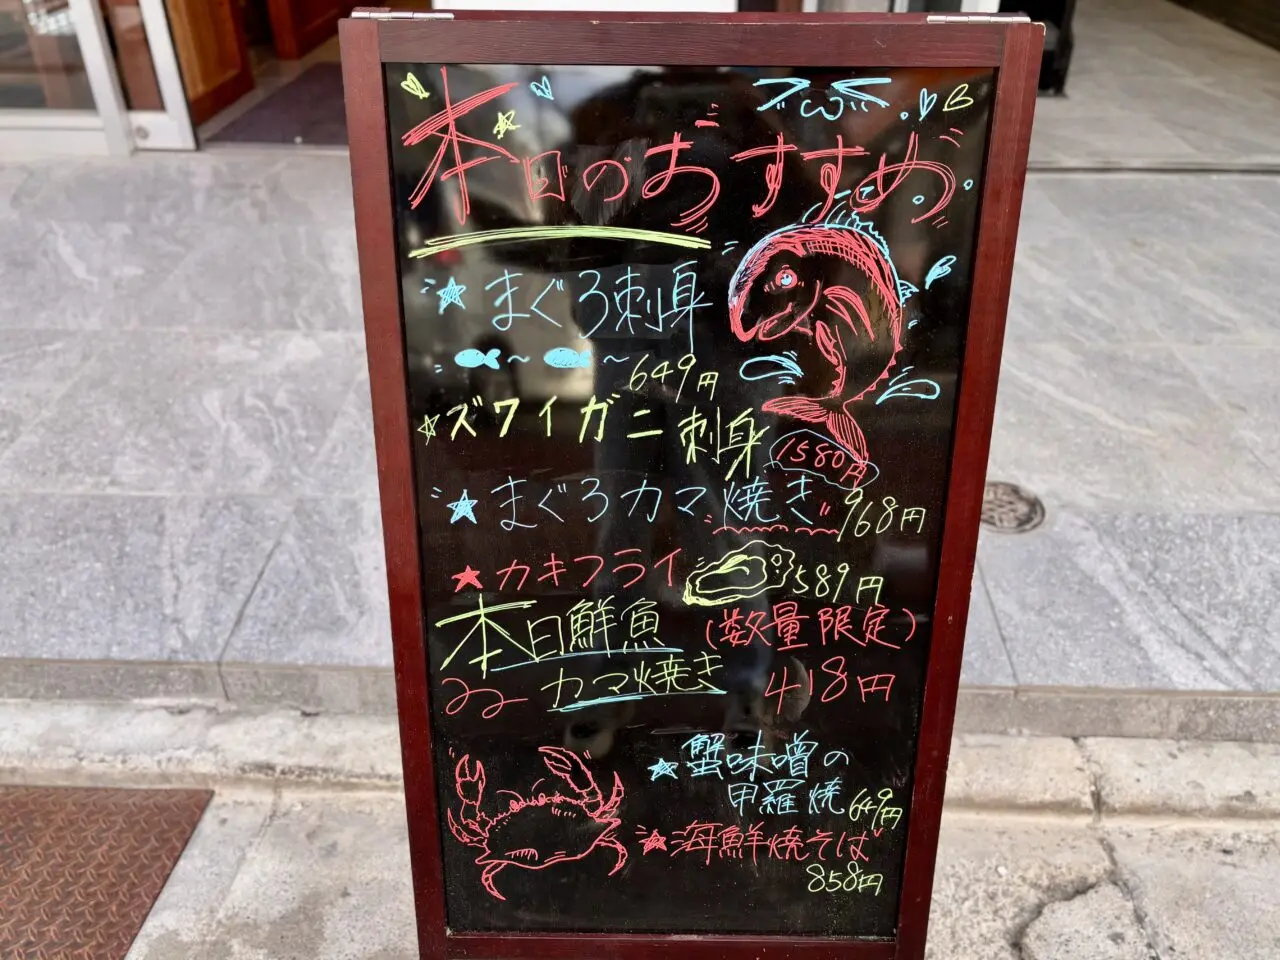 本日のおすすめ
まぐろ刺身
~ ~ 649円
ズワイガニ刺身 1580円
まぐろカマ焼き 968円
カキフライ 589円
本日鮮魚 (数量限定)
カマ焼き 418円
蟹味噌の
甲羅焼 649円
海鮮焼そば
858円